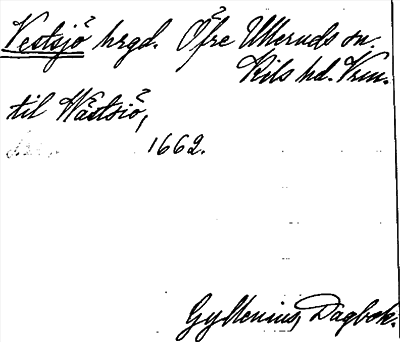 Vestsjö hrgd. Öfre Ulleruds sn.
Kils hd. Vrm.
til Wästsiö,
1662.
Gyllenius, Dagbok.